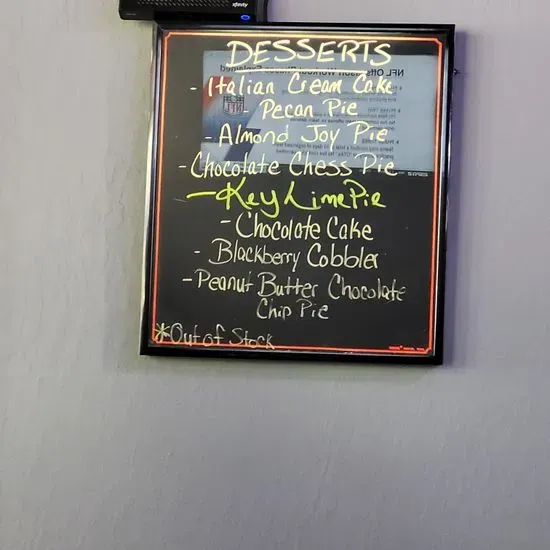 xfinity
DESSERTS
- Italian Cream Cake
Pecan Pie
- Almond Joy Pie
- Chocolate Chess Pie
- Key Lime Pie
- Chocolate Cake
- Blackberry Cobbler
- Peanut Butter Chocolate
Chip Pie
*Out of Stock